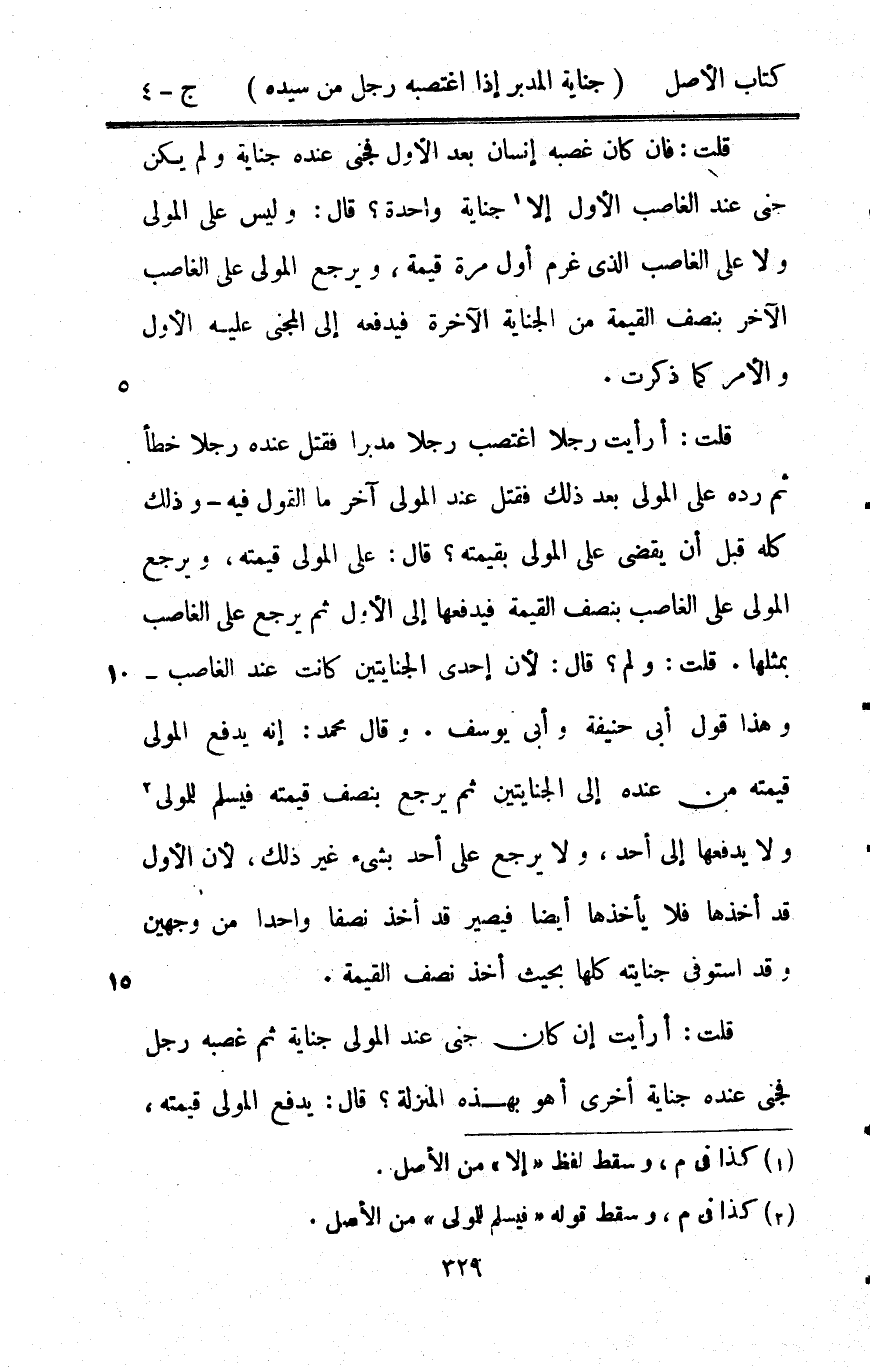 كتاب الأصل ( جناية المدبر إذا اغتصبه رجل من سيده ) ج - ٤
قلت : فان كان غصبه إنسان بعد الأول فجنى عنده جناية و لم يكن
جنى عند الغاصب الأول إلا١ جناية واحدة ؟ قال : و ليس على المولى
و لا على الغاصب الذى غرم أول مرة قيمة ، و يرجع المولى على الغاصب
الآخر بنصف القيمة من الجناية الآخرة فيدفعه إلى المجنى عليه الأول
و الأمر كما ذكرت .
٥
قلت : أ رأيت رجلا اغتصب رجلا مدبرا فقتل عنده رجلا خطأ
ثم رده على المولى بعد ذلك فقتل عند المولى آخر ما القول فيه - و ذلك
كله قبل أن يقضى على المولى بقيمته ؟ قال : على المولى قيمته ، و يرجع
المولى على الغاصب بنصف القيمة فيدفعها إلى الأول ثم يرجع على الغاصب
بمثلها . قلت : و لم ؟ قال : لأن إحدى الجنايتين كانت عند الغاصب -
١٠
و هذا قول أبى حنيفة و أبى يوسف . و قال محمد : إنه يدفع المولى
قيمته من عنده إلى الجنايتين ثم يرجع بنصف قيمته فيسلم للمولى٢
و لا يدفعها إلى أحد ، و لا يرجع على أحد بشىء غير ذلك ، لأن الأول
قد أخذها فلا يأخذها أيضا فيصير قد أخذ نصفا واحدا من وجهين
و قد استوفى جنايته كلها بحيث أخذ نصف القيمة .
١٥
قلت : أ رأيت إن كان جنى عند المولى جناية ثم غصبه رجل
فجنى عنده جناية أخرى أ هو بهذه المنزلة ؟ قال : يدفع المولى قيمته ،
(١) كذا فى م ، و سقط لفظ « إلا » من الأصل .
(٢) كذا فى م ، و سقط قوله « فيسلم للمولى » من الأصل .
٣٢٩